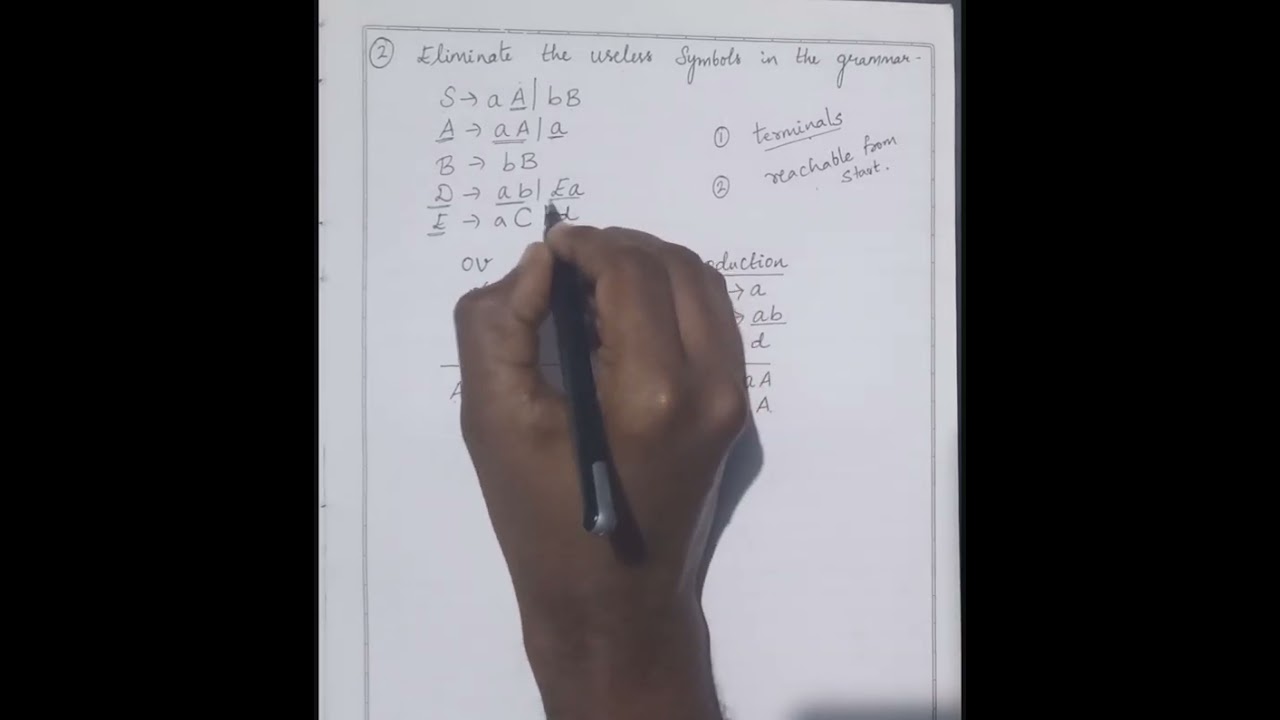 ② Eliminate the useless Symbols in the grammar.
S → a A | bB
A → aA | a
B → bB
D → ab | Ea
E → aC d
① terminals
② reachable from
start.
OV
oduction
→ a
→ ab
d
aA
A
A.